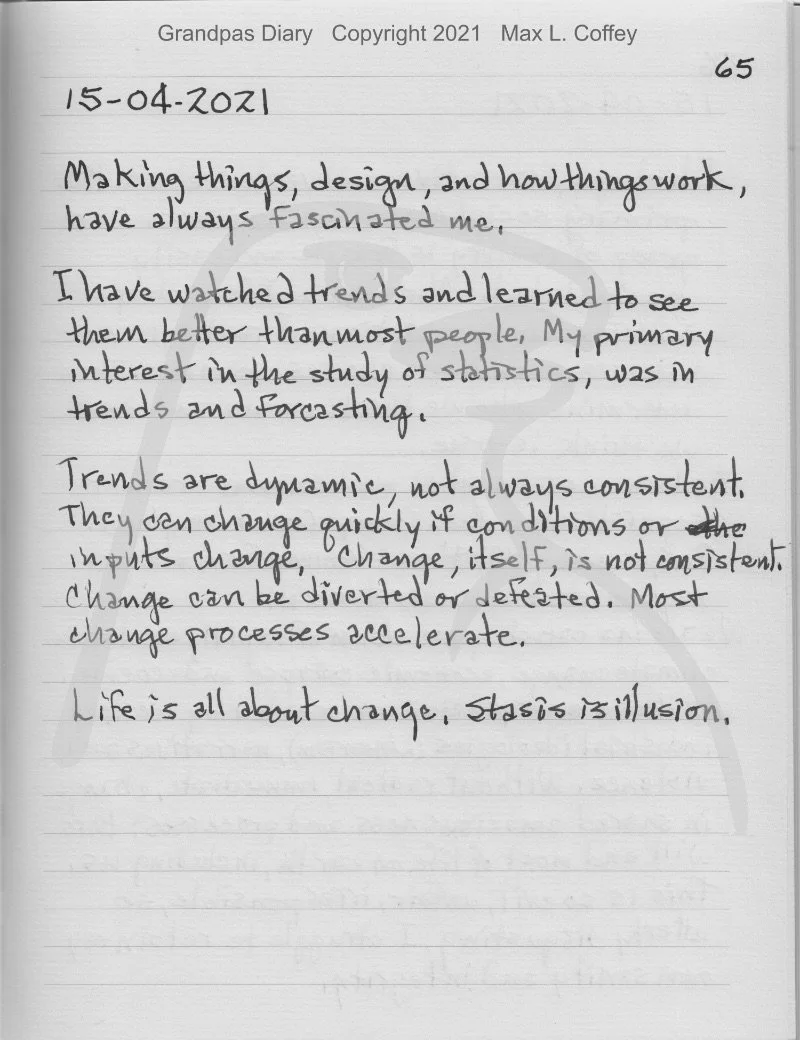 Grandpas Diary Copyright 2021 Max L. Coffey
65
15-04-2021
Making things, design, and how things work,
have always fascinated me.
I have watched trends and learned to see
them better than most people. My primary
interest in the study of statistics, was in
trends and forcasting.
Trends are dynamic, not always consistent.
They can change quickly if conditions or the
inputs change. Change, itself, is not consistent.
Change can be diverted or defeated. Most
change processes accelerate.
Life is all about change. Stasis is illusion.